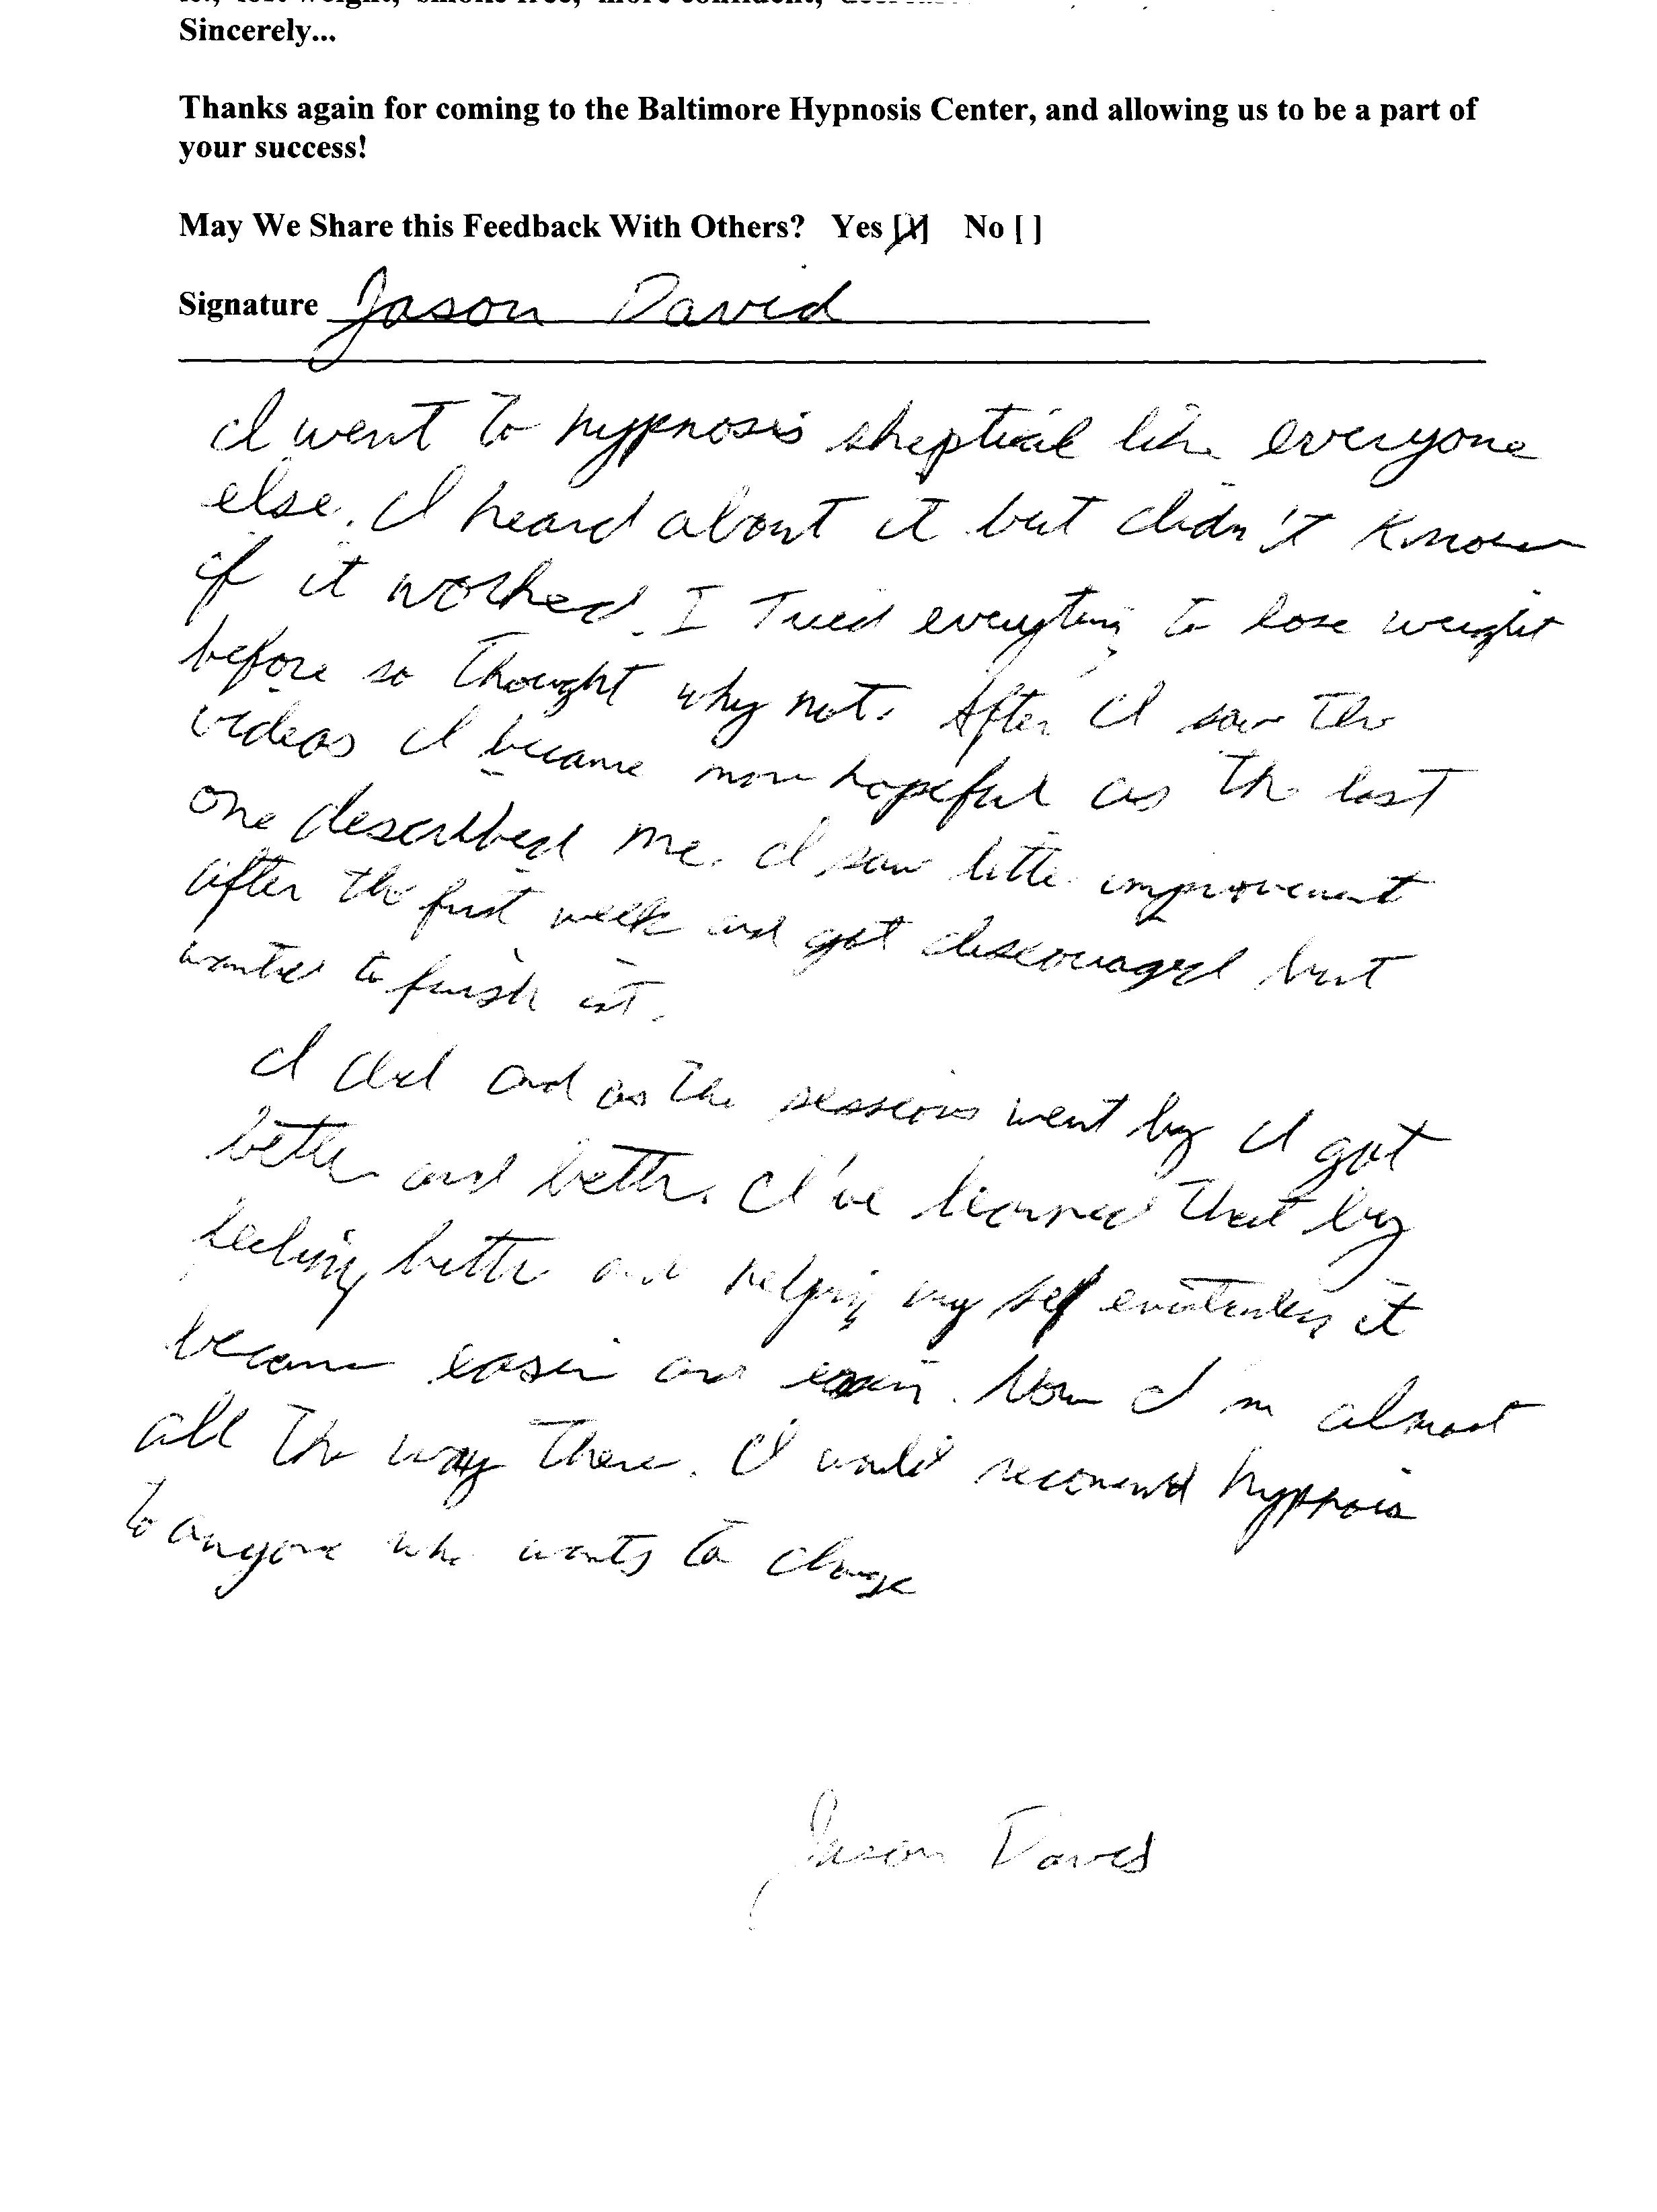 lost weight, smoke free, more confident,
Sincerely...
Thanks again for coming to the Baltimore Hypnosis Center, and allowing us to be a part of
your success!
May We Share this Feedback With Others? Yes [X] No [ ]
Signature Jason David
I went to hypnosis skeptical like everyone
else. I heard about it but didn't know
if it worked. I tried everything to lose weight
before so thought why not. After I saw the
videos I became more hopeful as the last
one described me. I saw little improvement
after the first week and got discouraged but
wanted to finish it.
I did and as the sessions went by I got
better and better. I've learned that by
feeling better and helping my self it
became easier and easier. Now I'm almost
all the way there. I would recomend hypnosis
to anyone who wants to change
Jason David